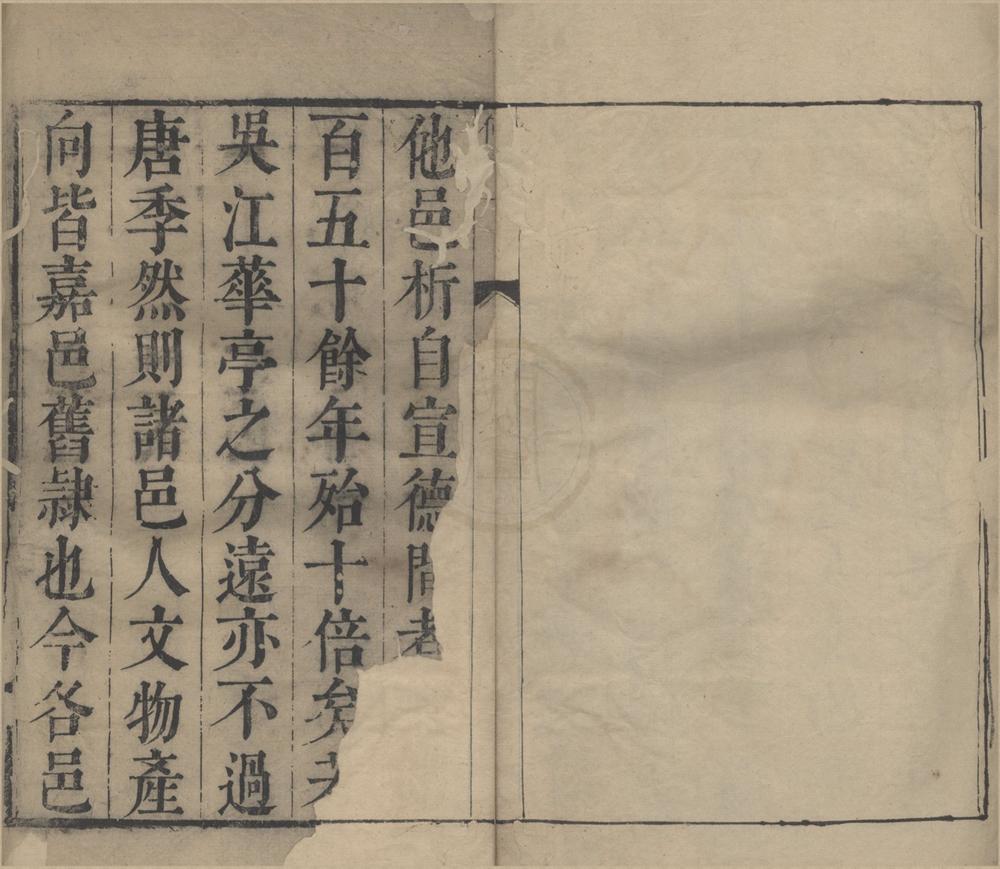 他邑析自宣德間者
百五十餘年殆十倍矣
吳江華亭之分遠亦不過
唐季然則諸邑人文物產
向皆嘉邑舊隷也今各邑